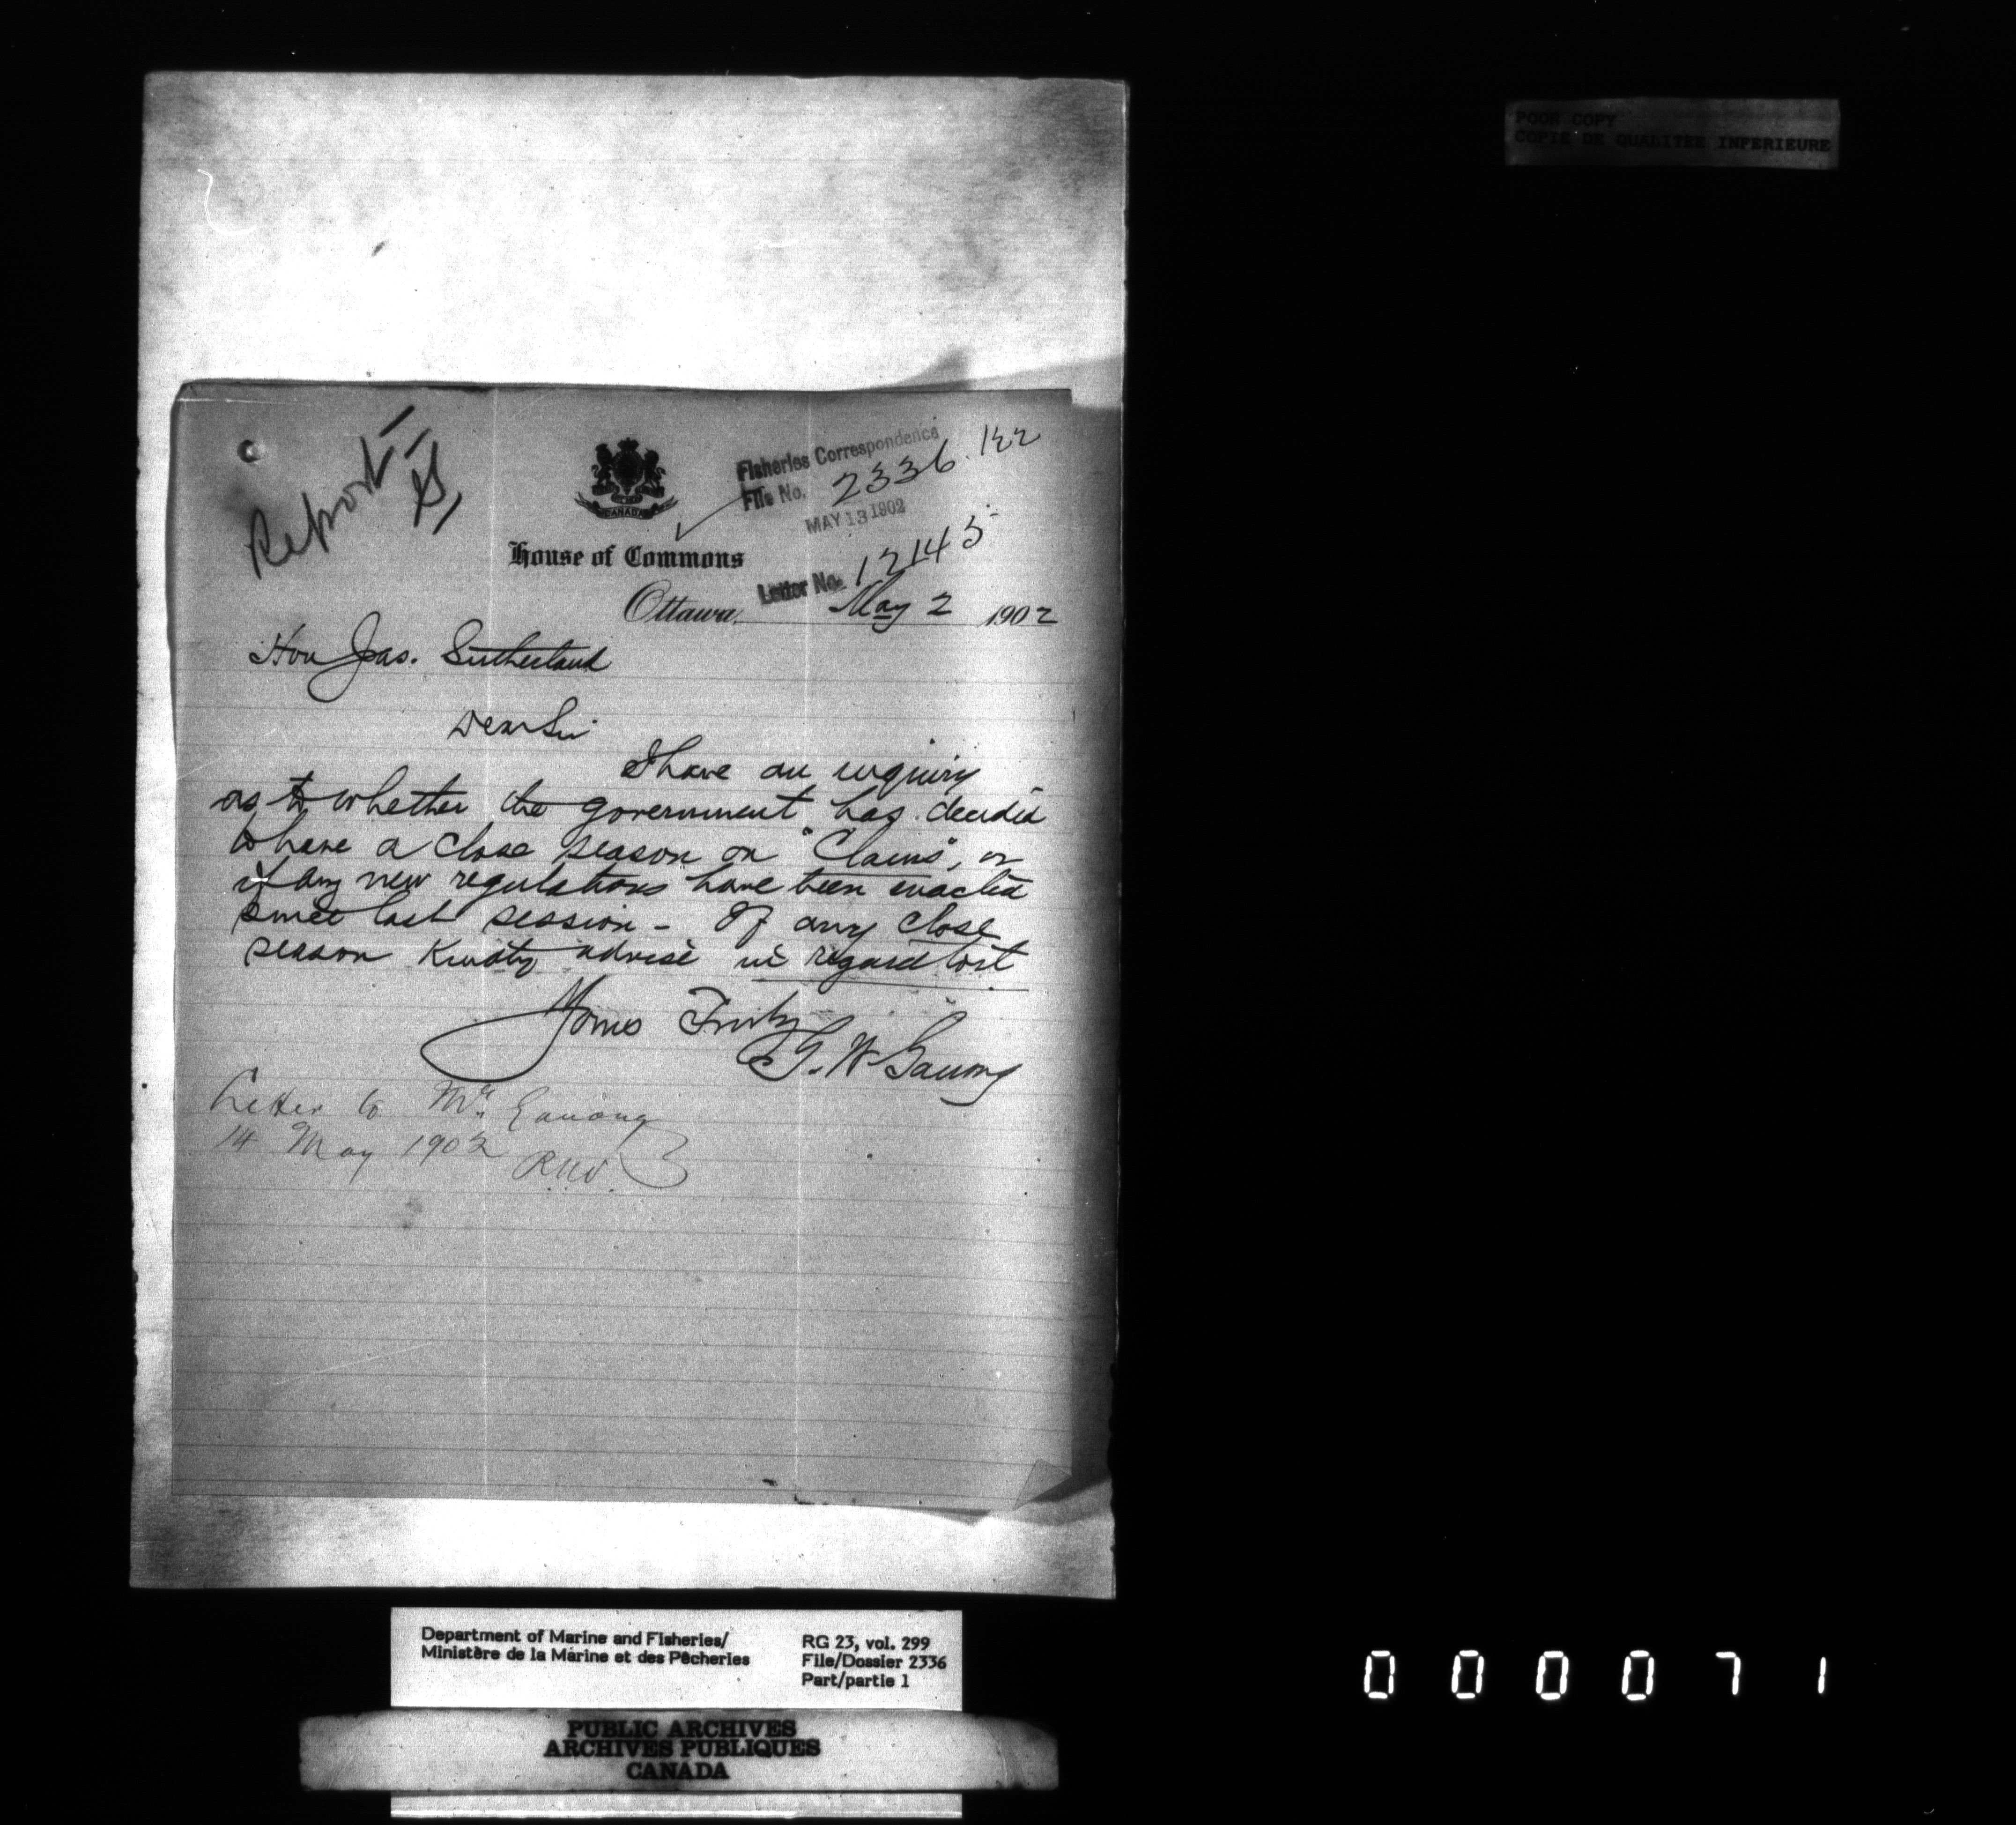 POOR COPY
COPIE DE QUALITEE INFERIEURE
Report
CANADA
Fisheries Correspondence
File No. 2336. 122
MAY 13 1902
House of Commons
Letter No. 12145
Ottawa, May 2 1902
Hon Jas. Sutherland
Dear Sir
I have an inquiry
as to whether the government has decided
to have a close season on "Clams", or
if any new regulations have been enacted
since last session - If any close
season Kindly advise in regard to it
Yours Truly
G. W Ganong
Letter to Mr. Ganong
14 May 1902
Department of Marine and Fisheries/
Ministère de la Marine et des Pêcheries
RG 23, vol. 299
File/Dossier 2336
Part/partie 1
PUBLIC ARCHIVES
ARCHIVES PUBLIQUES
CANADA
000071